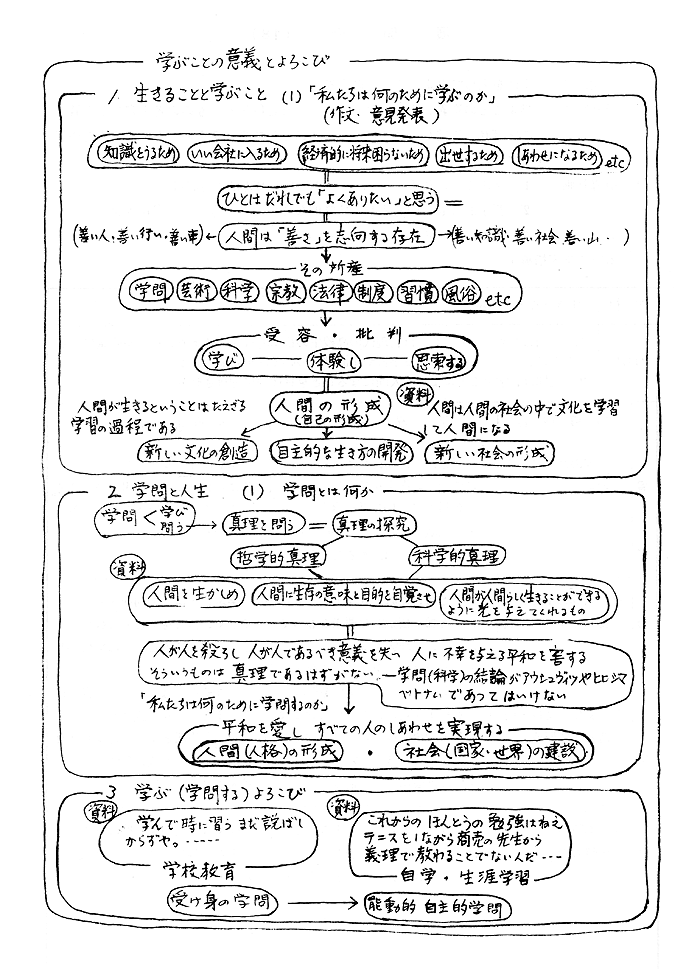 学ぶことの意義とよろこび
1 生きることと学ぶこと (1)「私たちは何のために学ぶのか」
(作文・意見発表)
知識をうるため いい会社に入るため 経済的に将来困らないため 出世するため しあわせになるため etc
ひとはだれでも「よくありたい」と思う
(善い人・善い行い・善い事) ← 人間は「善さ」を志向する存在 → (善い知識・善い社会 善い山・・)
その所産
学問 芸術 科学 宗教 法律 制度 習慣 風俗 etc
受容・批判
学び 体験し 思索する
資料
人間の形成
(自己の形成)
人間が生きるということはたえざる
学習の過程である
人間は人間の社会の中で文化を学習
して人間になる
新しい文化の創造 自主的な生き方の開発 新しい社会の形成
2 学問と人生 (1) 学問とは何か
学問 < 学び
問う
→ 真理を問う = 真理の探究
哲学的真理 科学的真理
資料
人間を生かしめ 人間に生存の意味と目的を自覚させ 人間が人間らしく生きることができる
ように光を与えてくれるもの
人が人を殺ろし 人が人であるべき意義を失い 人に不幸を与える平和を害する
そういうものは真理であるはずがない ― 学問(科学)の結論がアウシュヴィツやヒロシマ
ベトナムであってはいけない
「私たちは何のために学問するのか」
平和を愛し すべての人のしあわせを実現する
人間(人格)の形成 ・ 社会(国家・世界)の建設
3 学ぶ(学問する)よろこび
資料
学んで時に習うまた説ばし
からずや。-----
学校教育
資料
これからの ほんとうの 勉強はねえ
テニスをしながら商売の先生から
義理で教わることでないんだ---
自学・生涯学習
受け身の学問 → 能動的 自主的学問